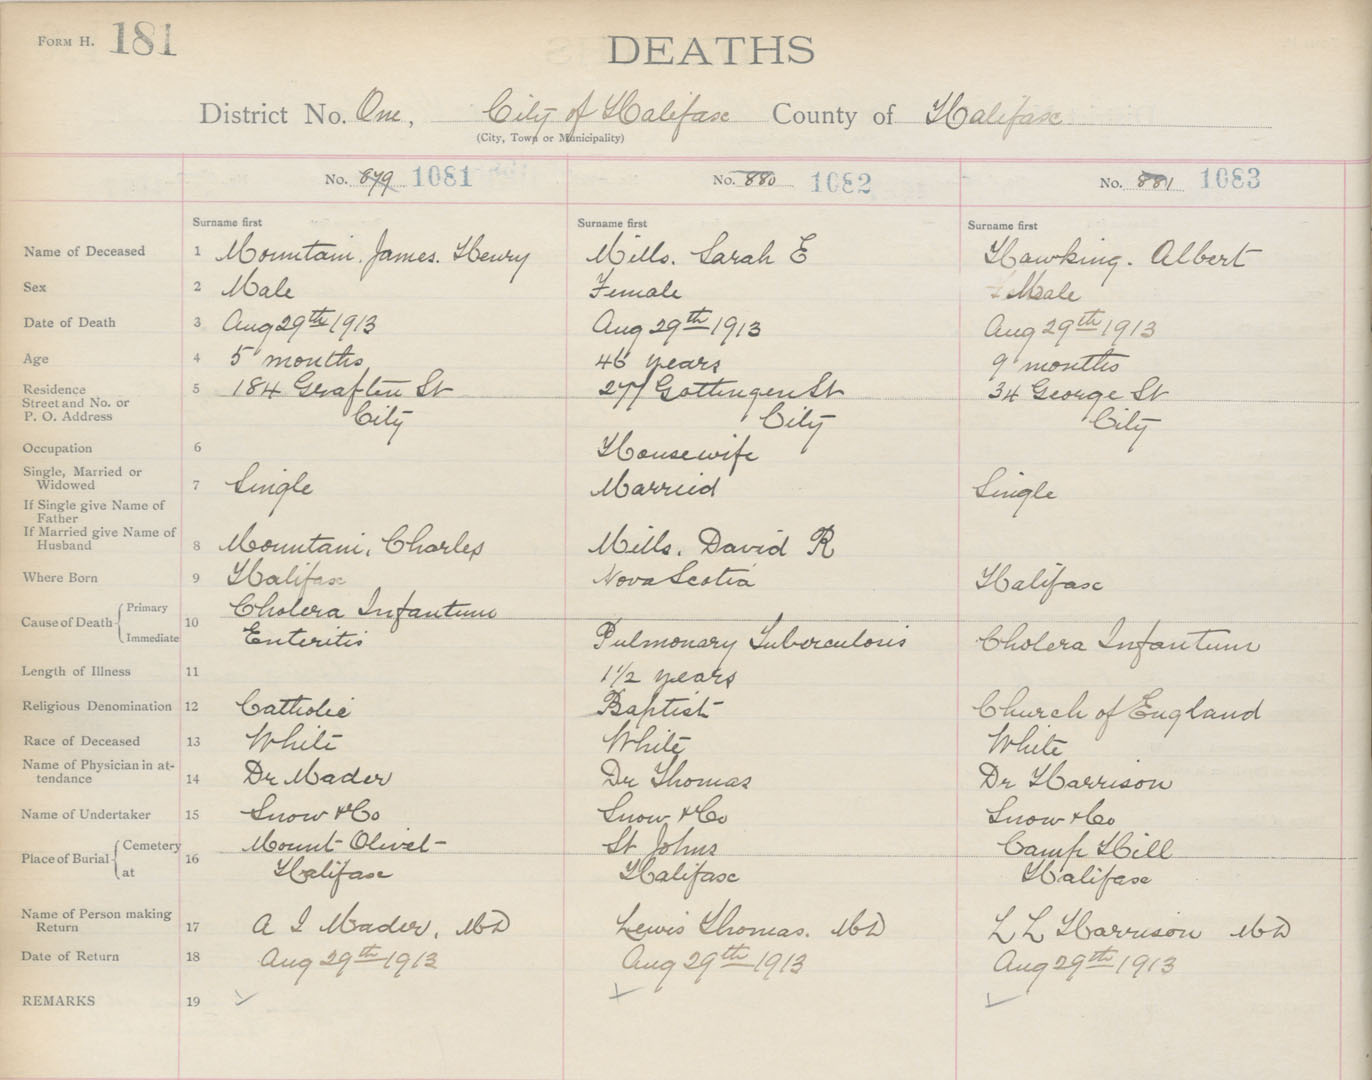 FORM H. 181
DEATHS
District No. One, City of Halifax County of Halifax
(City, Town or Municipality)
No. 879 1081 No. 880 1082 No. 881 1083
Surname first Surname first Surname first
Name of Deceased 1 Mountain. James. Henry Mills. Sarah E Hawking. Albert
Sex 2 Male Female Male
Date of Death 3 Aug 29th 1913 Aug 29th 1913 Aug 29th 1913
Age 4 5 months 46 years 9 months
Residence 5 184 Grafton St 277 Gottingen St 34 George St
Street and No. or
P. O. Address City City City
Occupation 6 Housewife
Single, Married or
Widowed 7 Single Married Single
If Single give Name of
Father
If Married give Name of
Husband 8 Mountain, Charles Mills. David R
Where Born 9 Halifax Nova Scotia Halifax
Cause of Death Primary 10 Cholera Infantum
Immediate Enteritis Pulmonary Tuberculosis Cholera Infantum
Length of Illness 11 1 1/2 years
Religious Denomination 12 Catholic Baptist Church of England
Race of Deceased 13 White White White
Name of Physician in at-
tendance 14 Dr Mader Dr Thomas Dr Harrison
Name of Undertaker 15 Snow & Co Snow & Co Snow & Co
Place of Burial Cemetery 16 Mount Olivet St Johns Camp Hill
at Halifax Halifax Halifax
Name of Person making
Return 17 A I Mader, MD Lewis Thomas. MD L L Harrison MD
Date of Return 18 Aug 29th 1913 Aug 29th 1913 Aug 29th 1913
REMARKS 19